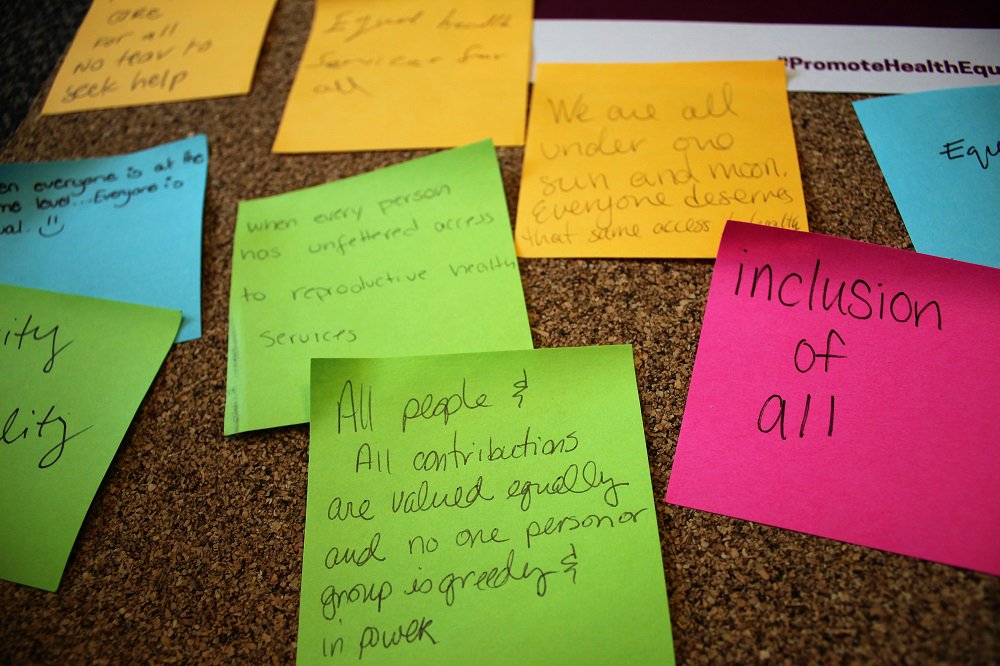 CARE
For all
No fear to
seek help
Equal health
Services for
all
#PromoteHealthEqu
We are all
under one
sun and moon.
Everyone deserves
that same access health
Equ
en everyone is at the
me level...Everyone is
ual. :)
when every person
has unfettered access
to reproductive health
services
inclusion
of
all
ity
lity
All people &
All contributions
are valued equally
and no one person or
group is greedy &
in power